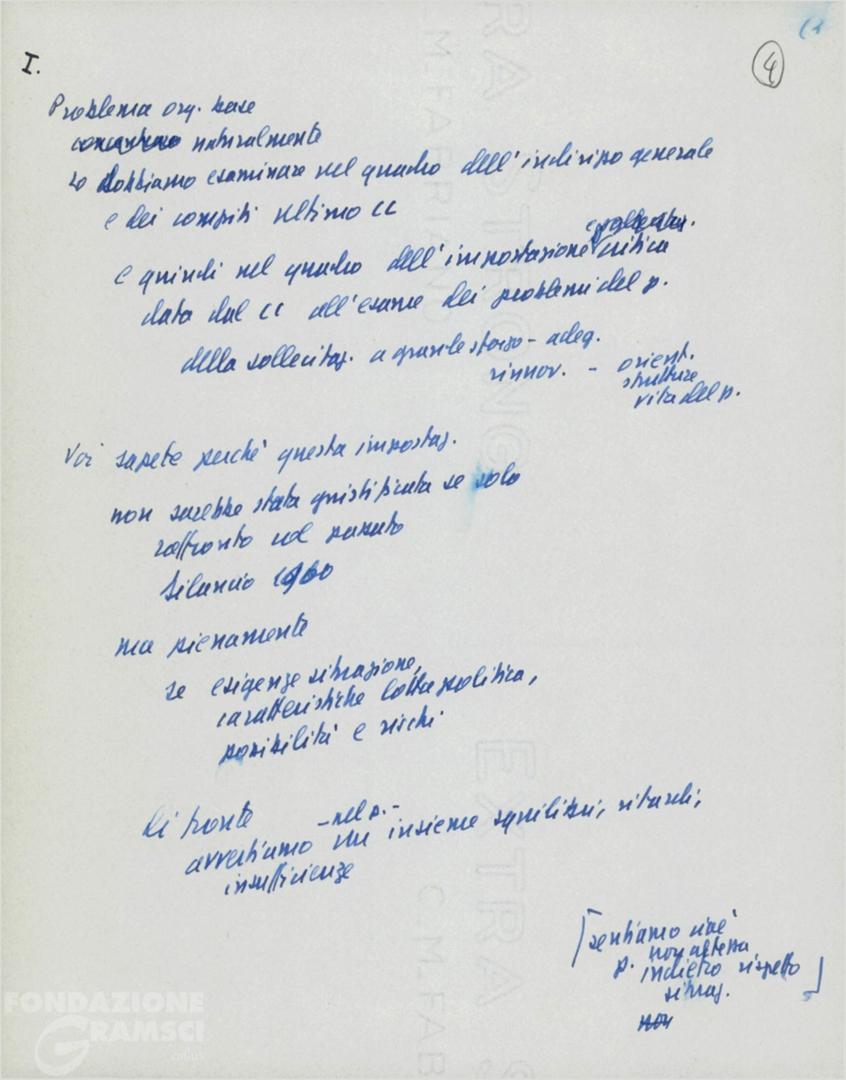 I.
4
Problema org. base
naturalmente
lo dobbiamo esaminare nel quadro dell'indirizzo generale
e dei compiti ultimo CC
e quindi nel quadro dell'impostazione critica
data dal CC all'esame dei problemi del p.
della sollecitaz. a grande sforzo - adeg.
rinnov. - orient.
strutture
vita del p.
Voi sapete perché questa impostaz.
non sarebbe stata giustificata se solo
raffronto col passato
bilancio 1960
ma pienamente
se esigenze situazione,
caratteristiche lotta politica,
possibilità e rischi
di fronte - nel p. -
avvertiamo un insieme squilibri, ritardi,
insufficienze
[sentiamo cioè
non altezza
p. indietro rispetto
situaz.]
non
EXTRA STRONG
C.M. FABRIANO
EXTRA S
C.M. FAB
FONDAZIONE
GRAMSCI
onlus